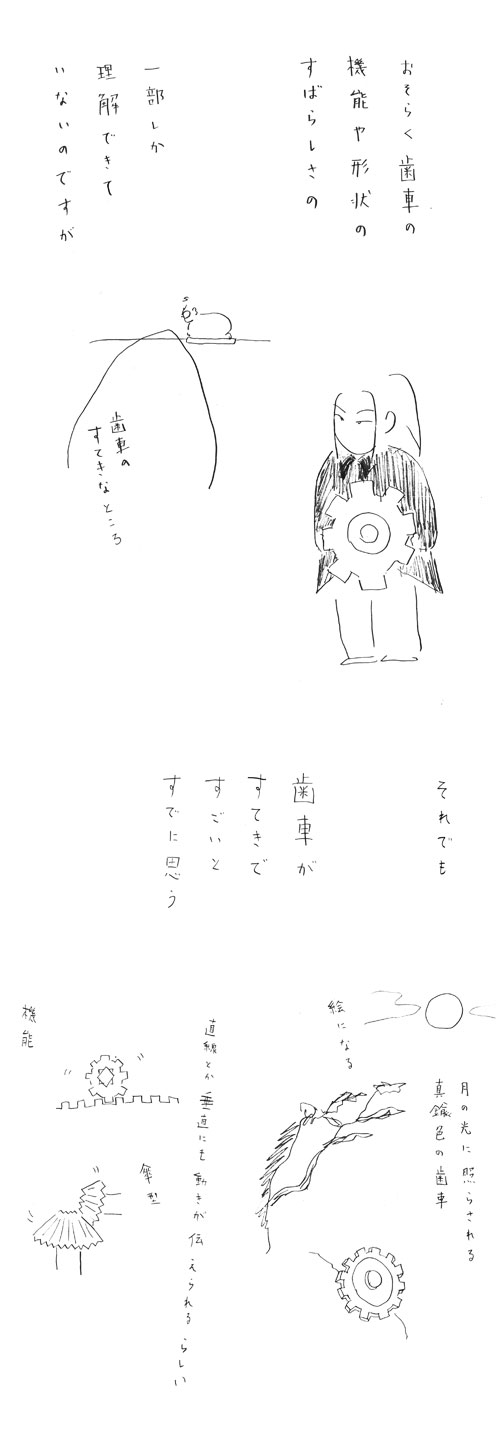 おそらく歯車の
機能や形状の
すばらしさの
一部しか
理解できて
いないのですが
歯車の
すてきなところ
それでも
歯車が
すてきで
すごいと
すでに思う
月の光に照らされる
真鍮色の歯車
絵になる
直線とか垂直にも動きが伝えられるらしい
傘型
機能